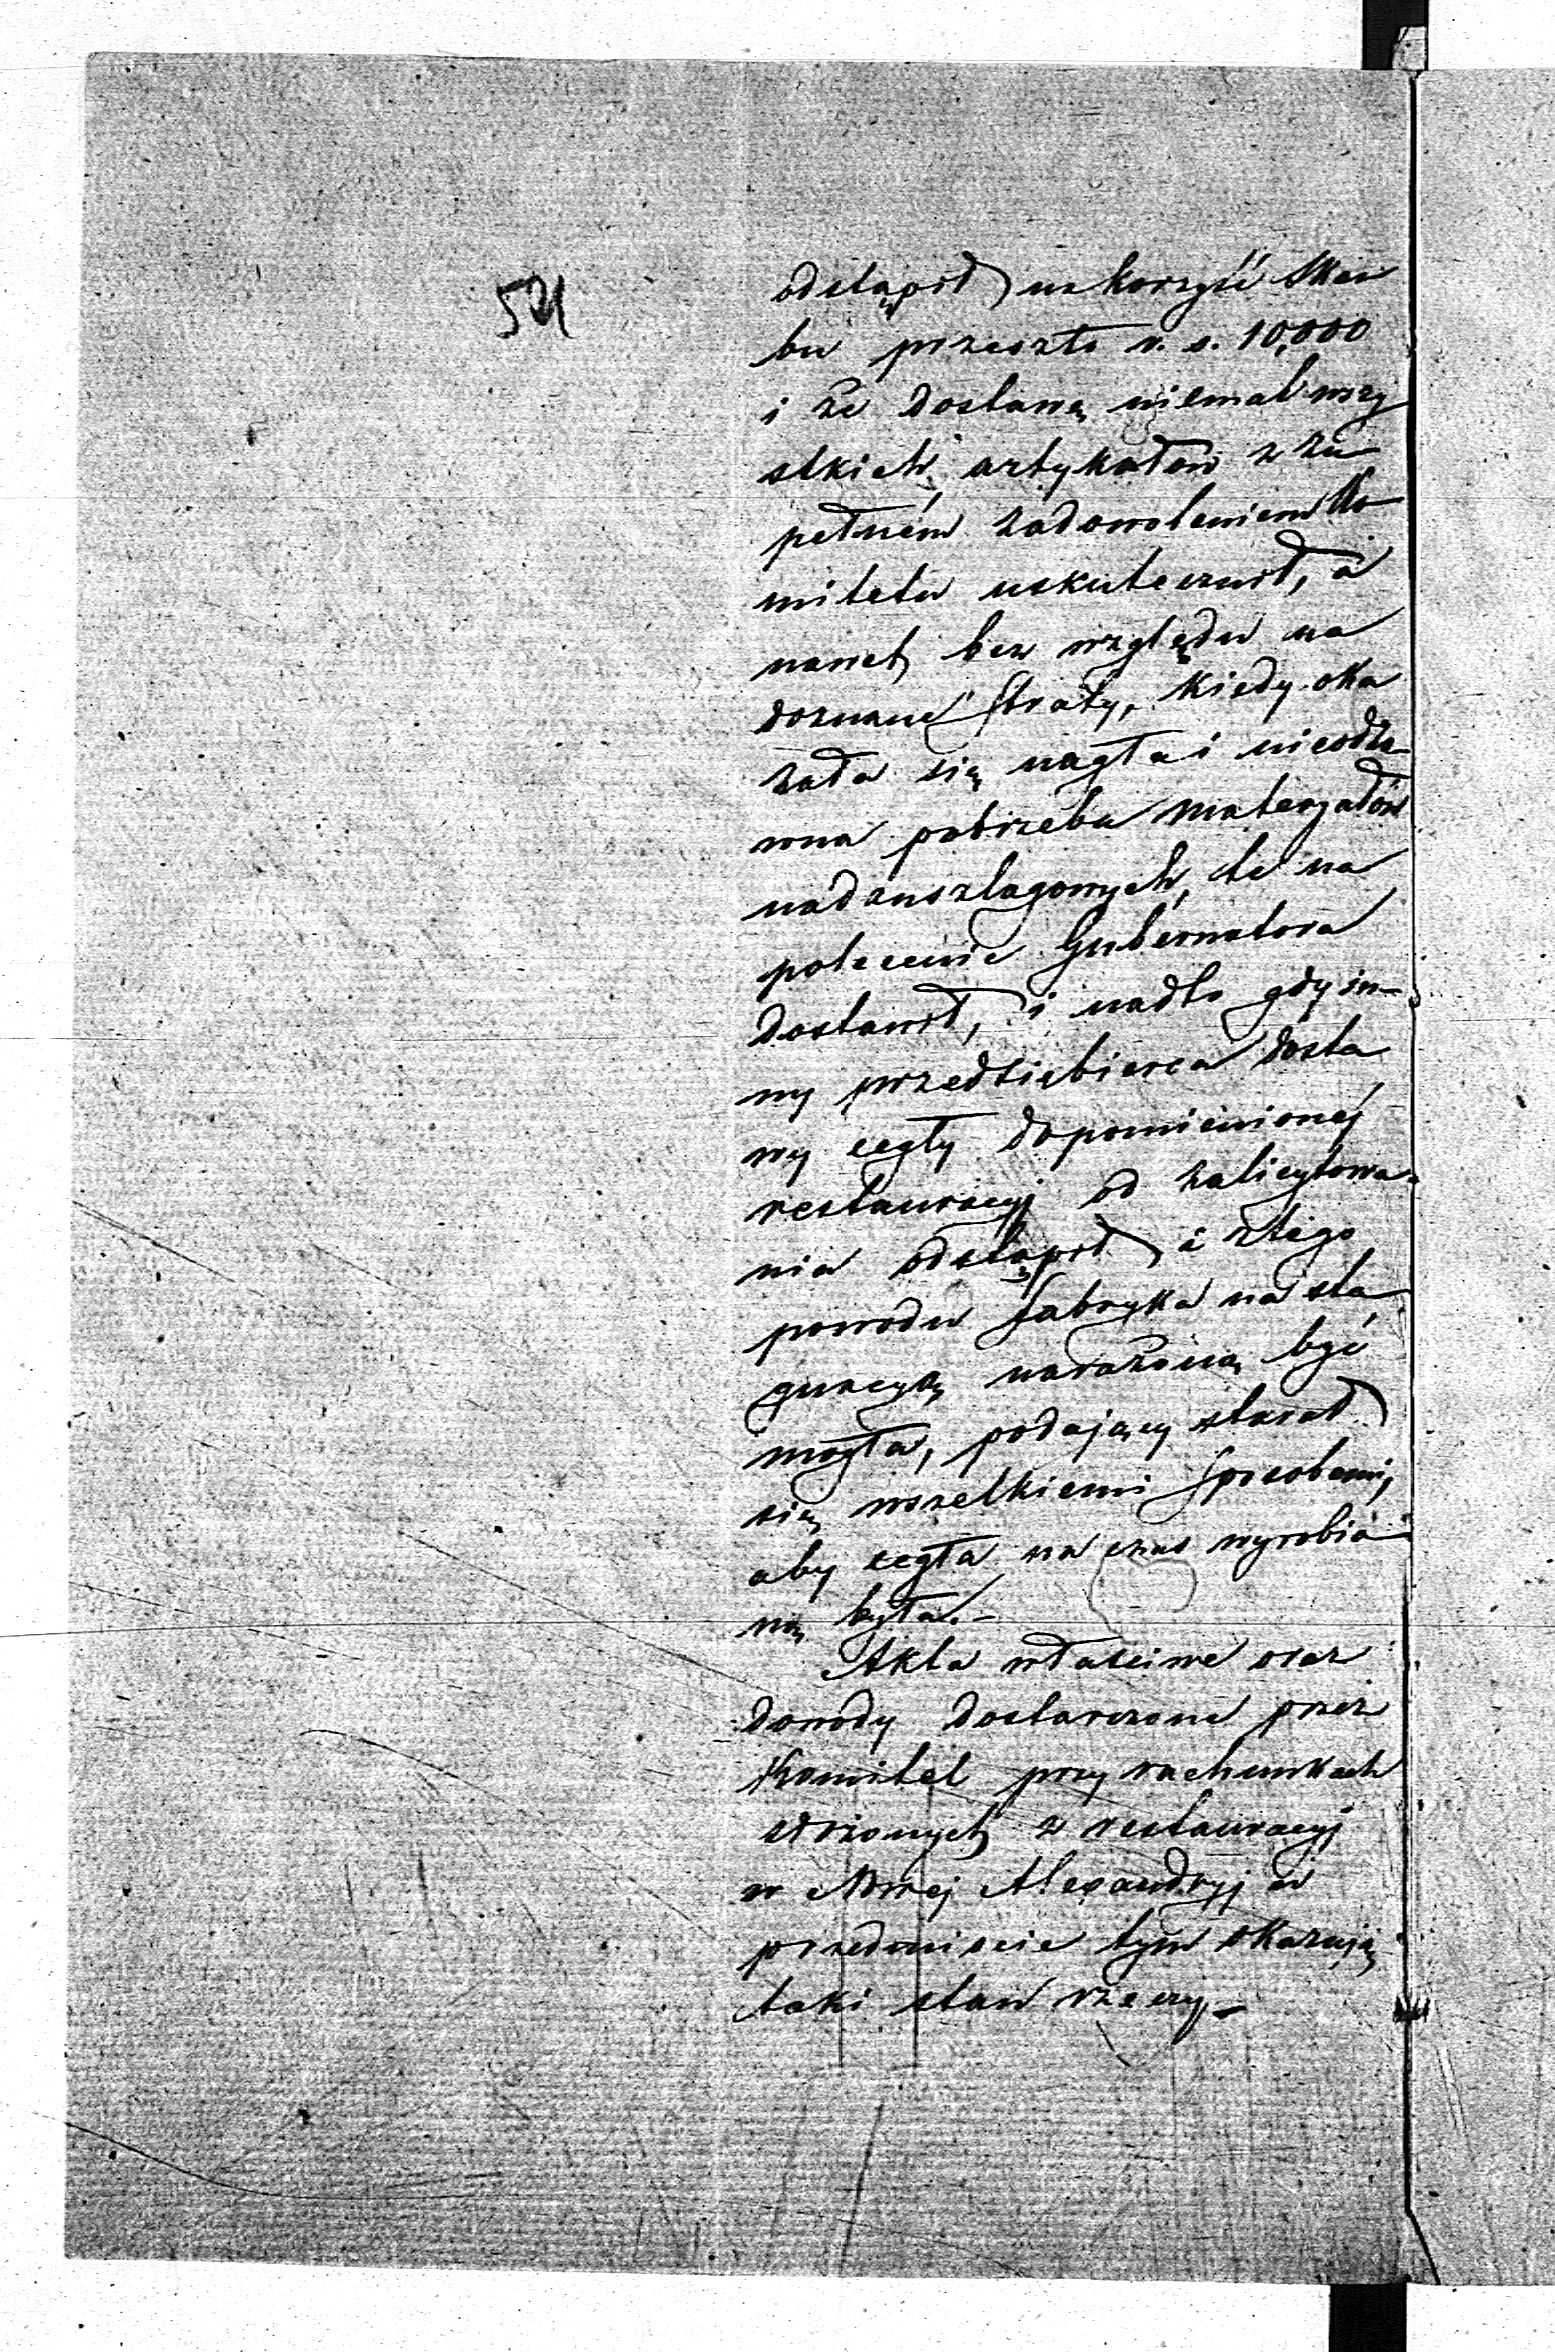 521
odstąpił na korzyść Skar
bu przeszło r. s. 10,000
i że dostawę niemal wszy
stkich artykułów z zu
pełném zadowoleniem Ko
mitetu uskutecznił, a
nawet bez względu na
doznane straty, kiedy oka
zała się nagła i nieodzo
wna potrzeba materyałów
nadanszlagowych, te na
polecenie Gubernatora
dostawił, i nadto gdy in-
ny przedsiębierca dosta
wy cegły dopomienionéj
restauracyi od zalicytowa-
nia odstąpił, i ztego
powodu fabryka na sta
gnacyą narażoną być
mogła, podający starał
się wszelkiemi sposobami,
aby cegła na czas wyrobio
ną była.-
Akta właściwe oraz
dowody dostarczone przez
Komitet przy rachunkach
złożonych z restauracyi
w Nowej Alexandryj w
przedmiocie tym okazują
taki stan rzeczy-